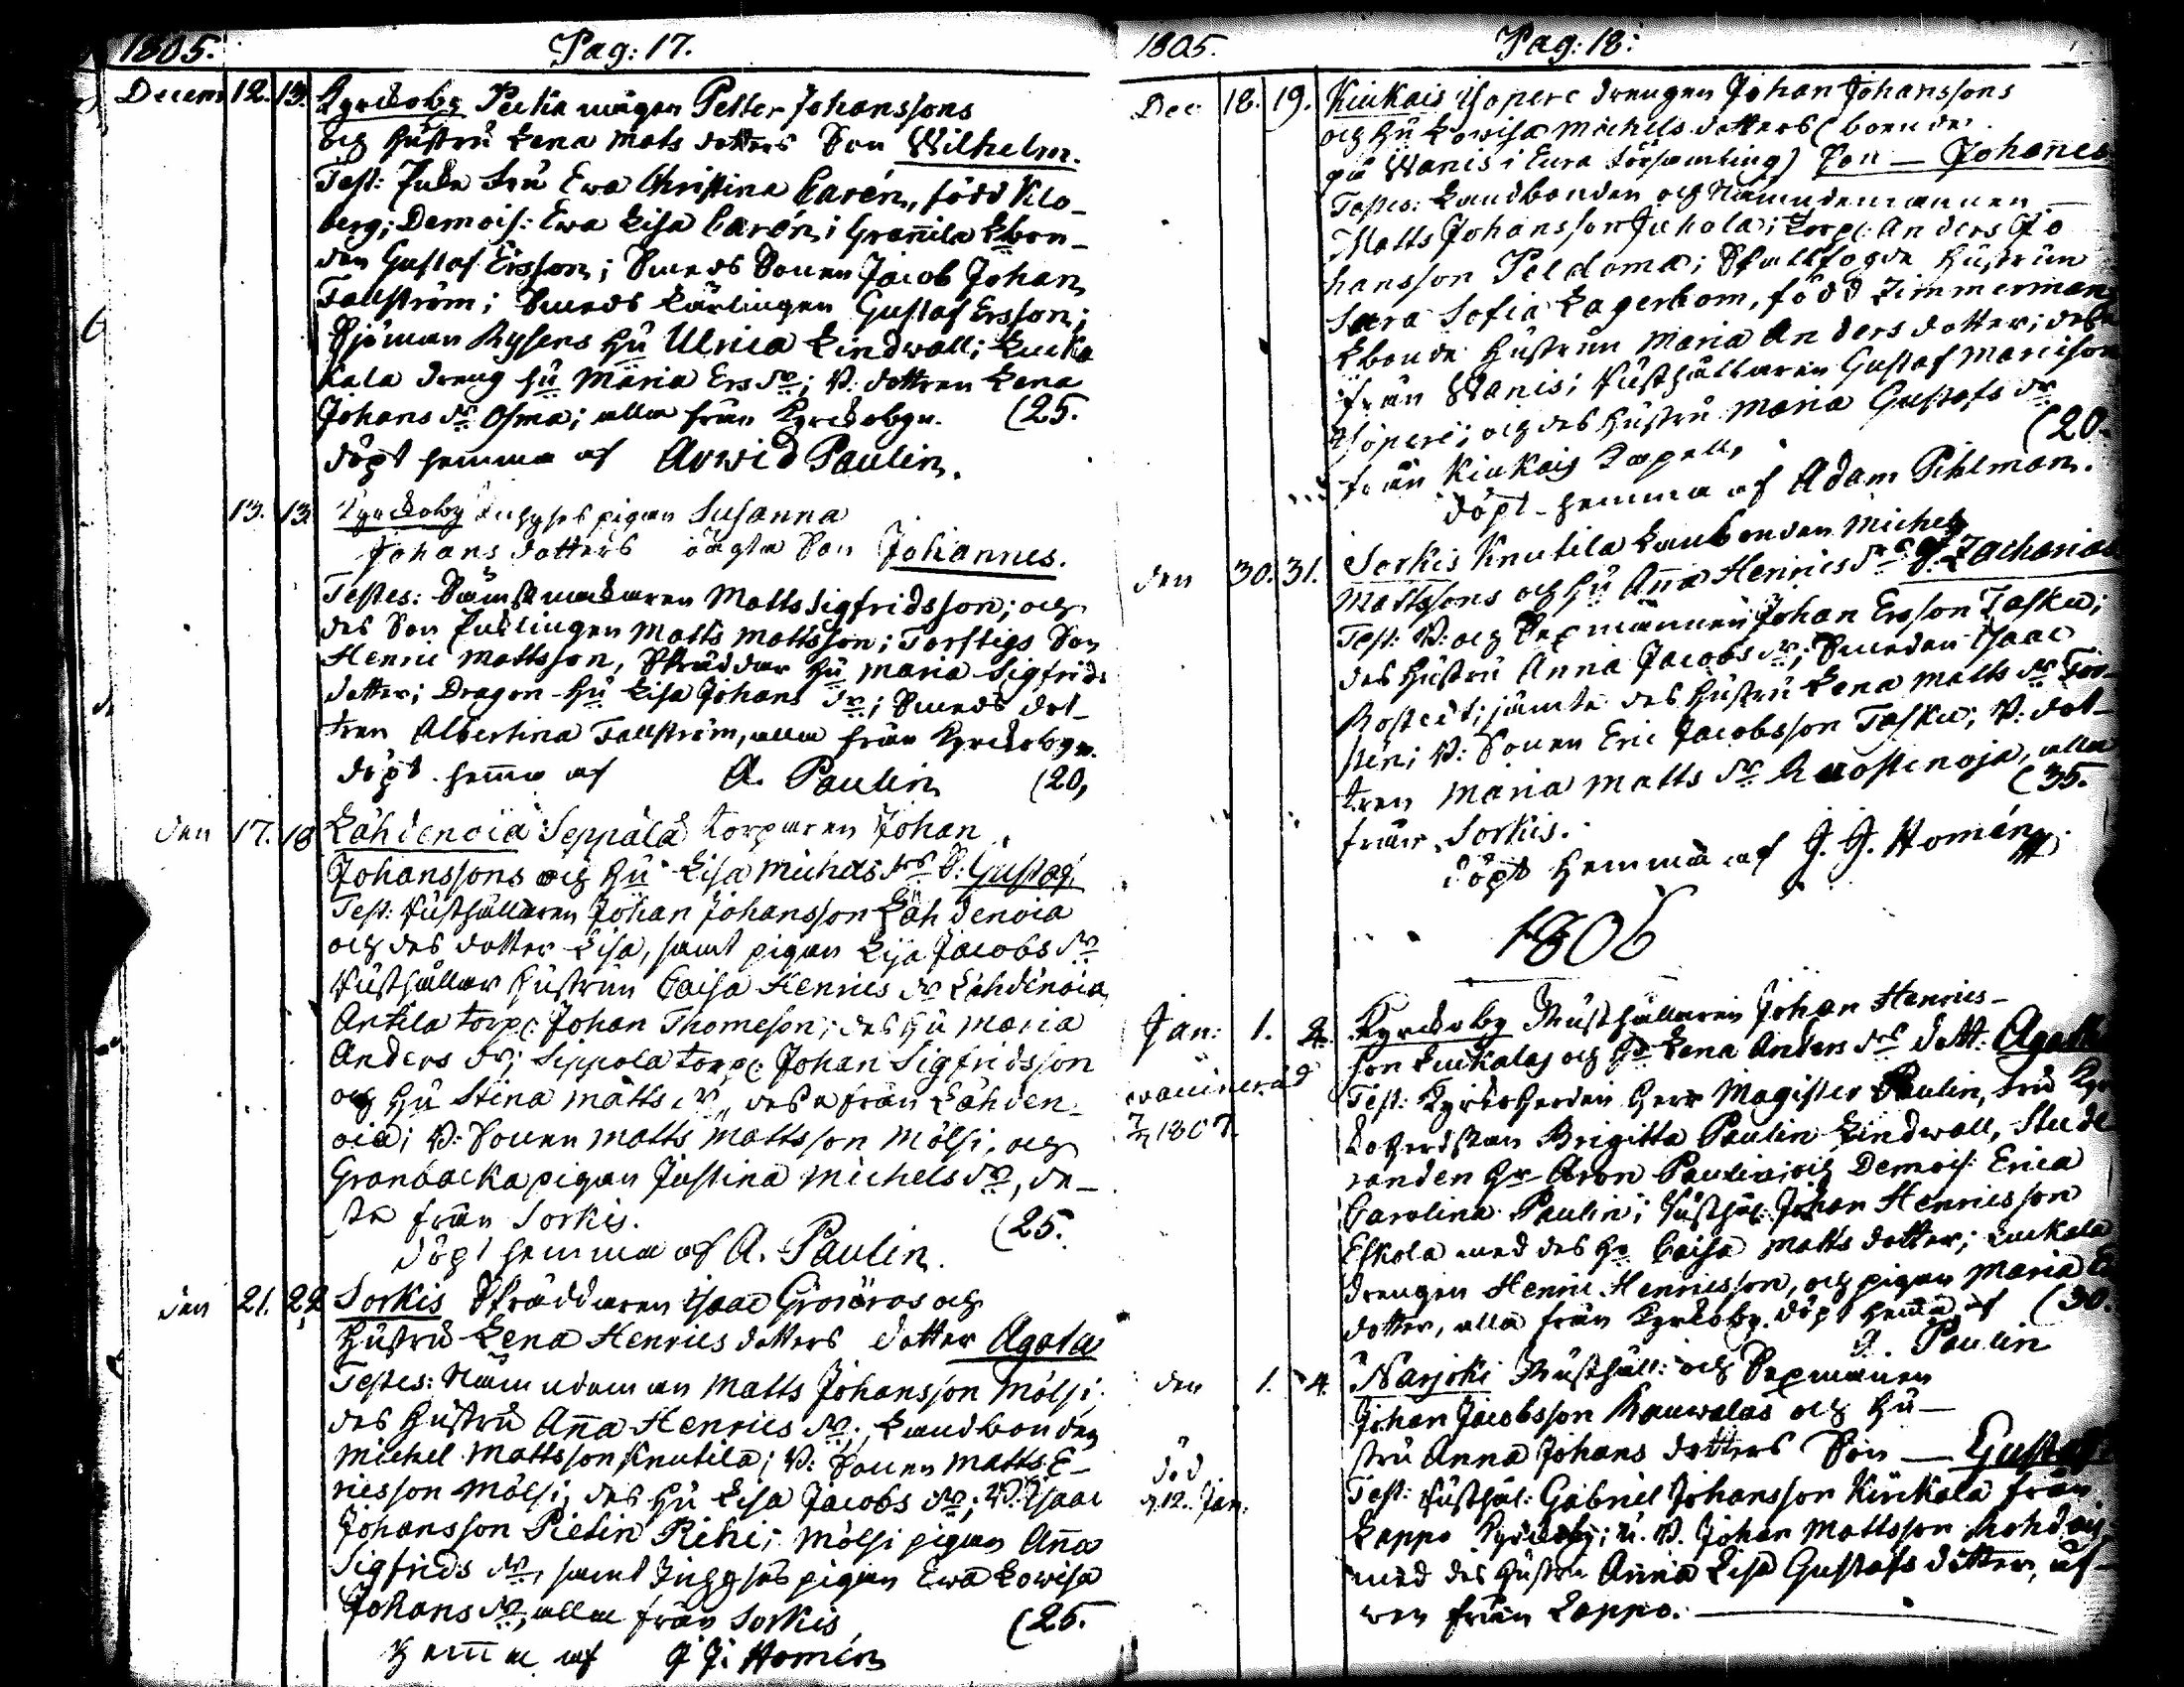 1805.
Pag: 17.
Decemb 12. 13. Kyrckoby Peltia mågen Petter Johanssons
och Hustru Lena Mats dotters Son Wilhelm.
Test: Fru Ewa Christina Carén, född Klo-
berg; Demois: Ewa Lisa Carén; Grannila Lbon-
den Gustaf Ersson; Smeds Sonen Jacob Johan
Tallström; Smeds Lärlingen Gustaf Ersson;
Sjöman Rysens Hu Ulrica Lindwall; Lucka
Kala dreng hu Maria Ers dr; B: dottren Lena
Johans dr Osma; alla från Kyrckobyn. (25.
döpt hemma af Arwid Paulin.
13. 13. Kyrckoby Inhyses pigan Susanna
Johans dotters oägta Son Johannes.
Testes: Sämskmakaren Matts Sigfridsson; och
des Son Matts Mattsson; Torftigs Son
Henric Mattsson, Skräddar Hu Maria Sigfrids
dotter; Dragon Hu Lisa Johans dr; Smeds dot-
tren Albertina Tallström, alla från Kyrckobyn.
döpt hema af A. Paulin (20,
den 17. 18 Lähdenoia Seppälä torparen Johan
Johanssons och Hu Lisa Michels drs S: Gustaf.
Test: Rusthållaren Johan Johansson Lähdenoia
och des dotter Lisa, samt pigan Lisa Jacobs dr
Rusthållar Hustrun Caisa Henrics dr Lähdenoia
Antila torp: Johan Thomeson; des Hu Maria
Anders dr; Sippola torp: Johan Sigfridsson
och Hu Stina Matts dr, desse från Lähden-
oia; B: Sonen Matts Mattsson Mölsi, och
Granbacka pigan Justina Michels dr, de-
sse från Sorkis. (25.
döpt hemma af A. Paulin.
den 21. 22 Sorkis Skräddaren Isaac Grönroos och
Hustru Lena Henrics dotters dotter Agata
Testes: Nämndeman Matts Johansson Mölsi,
des Hustru Anna Henrics dr; Landbonden
Michel Mattsson Knutila; B: Sonen Matts E-
ricsson Mölsi; des Hu Lisa Jacobs dr; B: Isaac
Johansson Pietin Rihi; Mölsi pigan Anna
Sigfrids dr, samt Inhyses pigan Ewa Lowisa
Johans dr, alla från Sorkis (25.
Hemma af J. J. Homén
1805.
Pag: 18:
Dec 18. 19. Kiukais Isopere drengen Johan Johanssons
och Hu Lowisa Michels dotters (boende
på Wanis i Eura församling) Son — Johannes
Testes: Landbonden och Nämndemannen
Matts Johansson Juhola; Torp: Anders Jo
hansson Peldoma; Stallfogde Hustrun
Sara Sofia Lagerbom, född Zimmerman
Lbonde Hustrun Maria Anders dotter; desse
från Wanis; Rusthållaren Gustaf
Isopere; och des Hustru Maria Gustafs dr
från Kiukais Capell, (20.
döpt hemma af Adam Pihlman.
den 30. 31. Sorkis Knutila Lanbonden Michel
Mattssons och Hu Anna Henrics drs S. Zacharias
Test: B: och Sexmannen Johan Ersson Tasku;
des Hustru Anna Jacobs dr; Smeden Isaac
Rostedt; jämte des Hustru Lena Matts dr
B: Sonen Eric Jacobsson Tasku; B: dot-
tren Maria Matts dr Ruostenoja, alla
från Sorkis. (35.
döpt Hemma af J. J. Homén
1806
Jan: 1. 2. Kyrckoby Rusthållaren Johan Henrics-
son Luckalas och Hu Lena Anders drs dott: Agatha
vaccinerad
1807.
Test: Kyrkoherden Herr Magister Paulin, Fru
Brigitta Paulin Lindwall, Stude
randen Hr Aron Paulin; och Demois: Erica
Carolina Paulin; Rusthål: Johan Henricsson
Eskola med des Hu Caisa Matts dotter; Luckala
drengen Henric Henricsson, och pigan Maria
dotter, alla från Kyrckoby. döpt hema af (30.
A. Paulin
den 1. 4. Narjoki Rusthåll: och Sexmanen
Johan Jacobsson Rauwalas och Hu-
stru Anna Johans dotters Son — Gustaf
död
d. 12. Jan:
Test: Rusthål: Gabriel Johansson Kirikala från
Lappo Kyrckoby; B. Johan Mattsson
med des Hustru Anna Lisa Gustafs dotter, äf-
wen från Lappo.